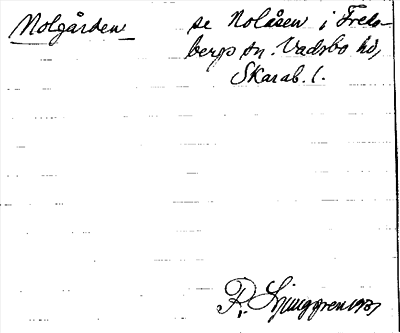 Molgården se Nolåsen i Freds-
bergs sn. Vadsbo hd,
Skarab. l.
R. Ljunggren